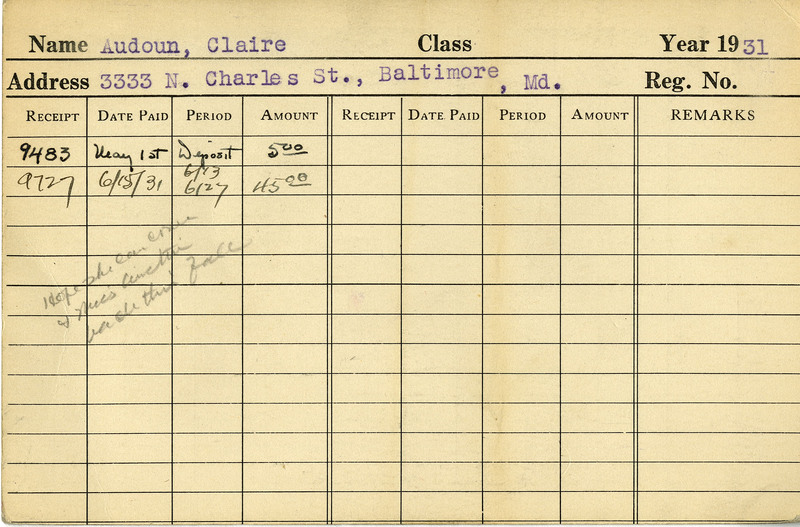 Name Audoun, Claire Class Year 1931
Address 3333 N. Charles St., Baltimore, Md. Reg. No.
RECEIPT DATE PAID PERIOD AMOUNT RECEIPT DATE PAID PERIOD AMOUNT REMARKS
9483 May 1st Deposit 5.00
9727 6/15/31 6/13 6/27 45.00
Hope she can come
& Miss
back this Fall